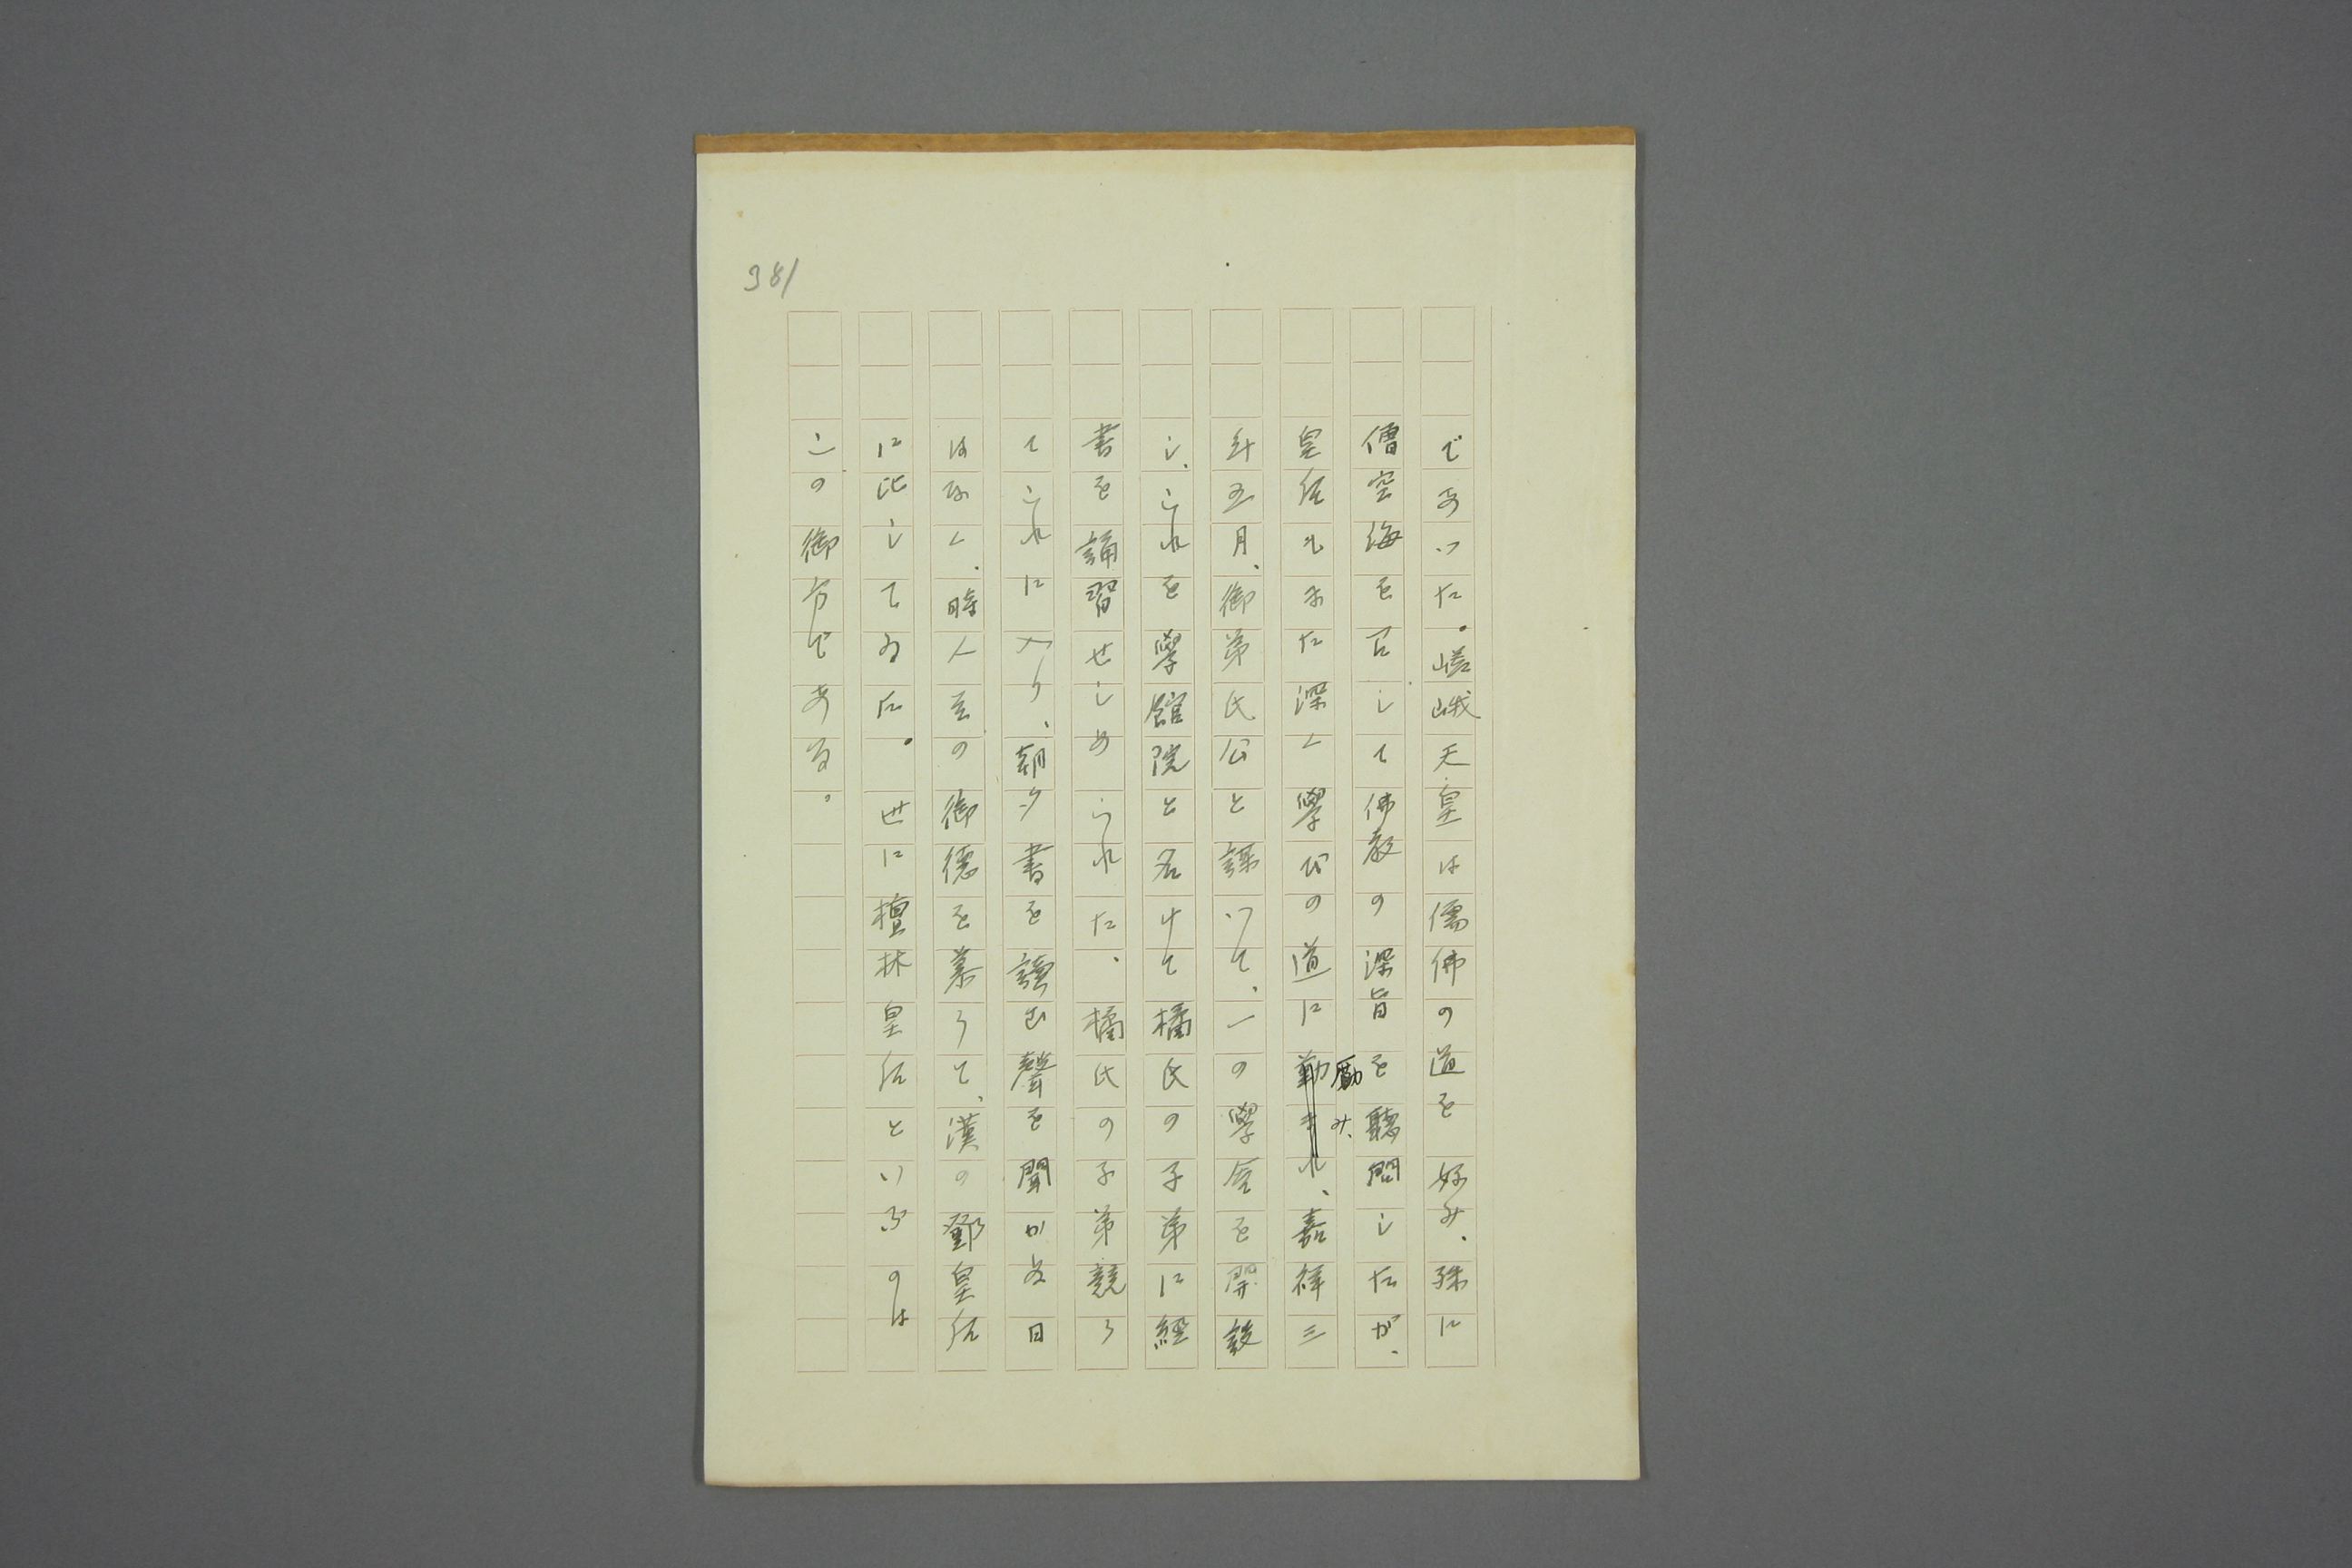 381
であつた。嵯峨天皇は儒佛の道を好み、殊に
僧空海を召して佛教の深旨を聽問したが、
皇后もまた深く學びの道に勤まれ、嘉祥三
勵み、
年五月、御弟氏公と謀つて、一の學舍を開設
し、これを學館院と名けて橘氏の子弟に經
書を誦習せしめられた、橘氏の子弟競う
てこれに入り、朝夕書を讀む聲を聞かぬ日
はなく、時人至の御德を慕うて、漢の鄧皇后
に比してゐた。世に檀林皇后といふのは
この御方である。